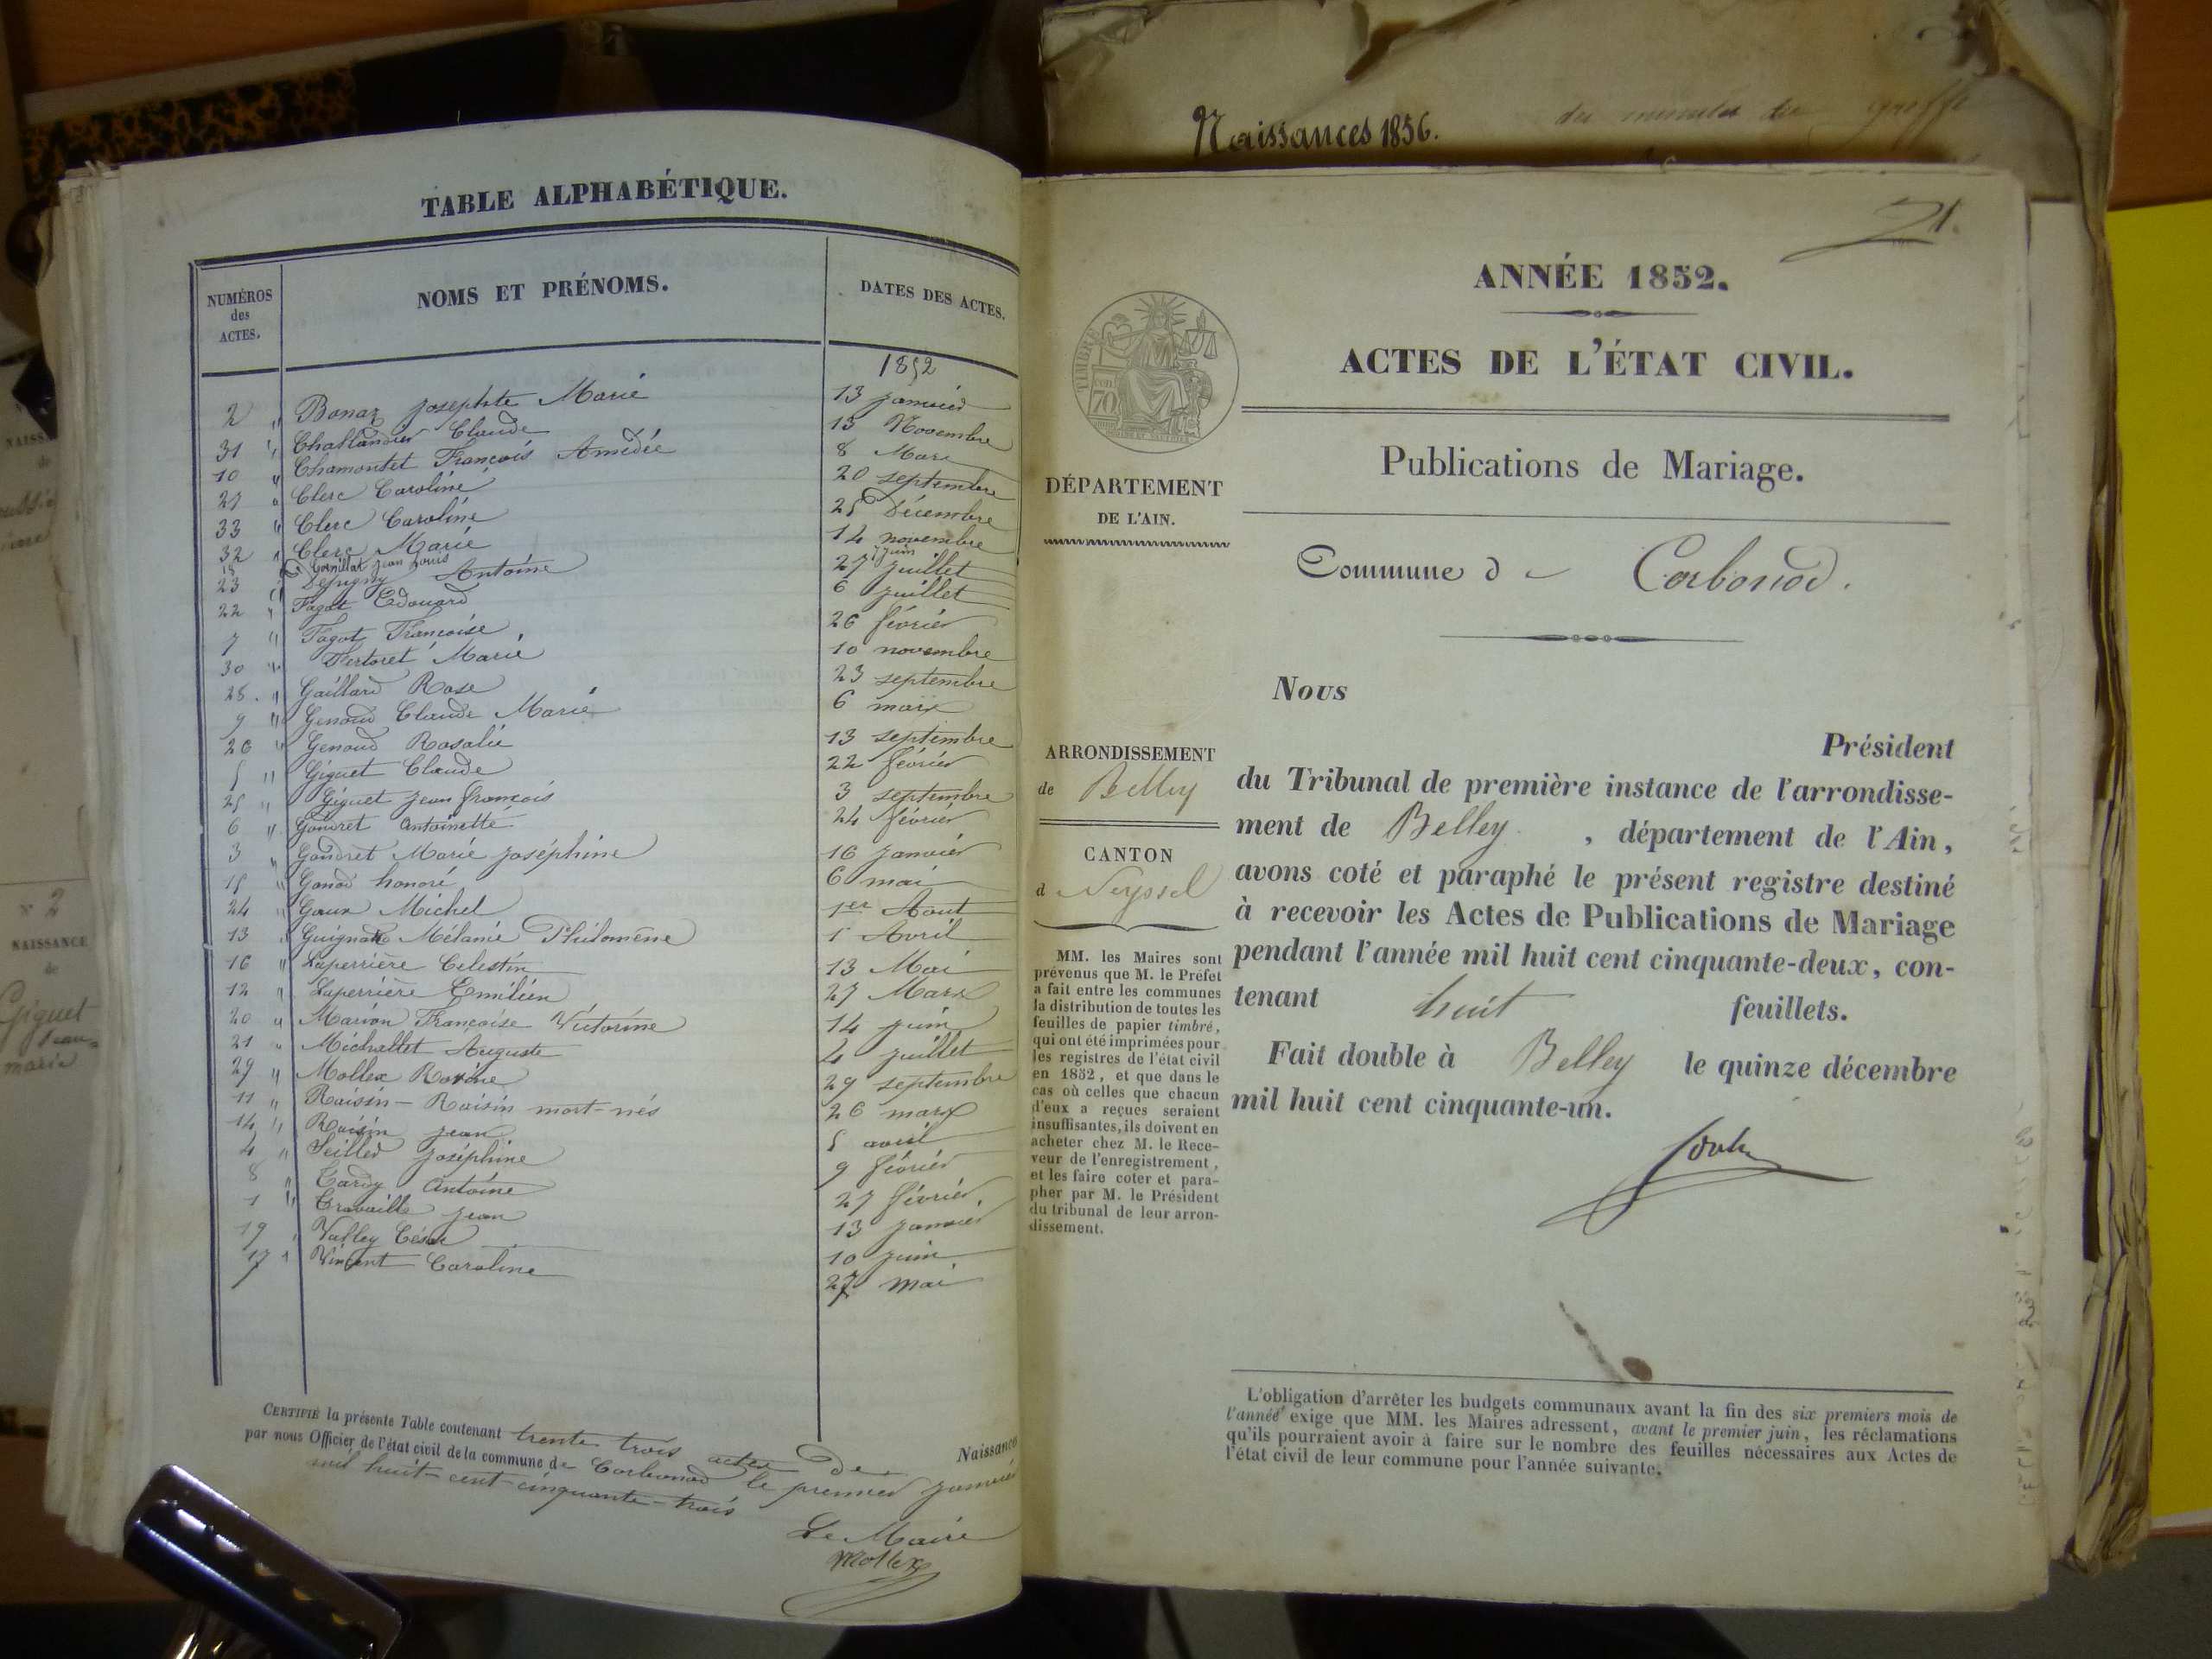 TABLE ALPHABÉTIQUE.
NUMÉROS
des
ACTES.
NOMS ET PRÉNOMS.
DATES DES ACTES.
1852
2 " Bonaz Josephte Marie 13 janvier
31 " Challandier Claude 13 Novembre
10 " Chamontet François Amédée 8 Mars
27 " Clerc Caroline 20 septembre
33 " Clerc Caroline 25 Décembre
32 " Clerc Marie 14 novembre
18 " Cornillat jean Louis juin
23 " Depigny Antoine 27 juillet
22 " Fagot Edouard 6 juillet
7 " Fagot Françoise 26 févrièr
30 " Fertoret Marie 10 novembre
28 " Gaillard Rose 23 septembre
9 " Genoud Claude Marie 6 mars
26 " Genoud Rosalie 13 septembre
5 " Giguet Claude 22 févrièr
25 " Giguet jean françois 3 septembre
6 " Gondret Antoinette 24 févrièr
3 " Gondret Marie joséphine 16 janvier
15 " Gonod honoré 6 mai
24 " Goux Michel 1er Aout
13 " Mélanie Philomène 1 Avril
16 " Laperrière Celestin 13 Mai
12 " Laperrière Emilien 27 Mars
20 " Marion Françoise Victorine 14 juin
21 " Michallet Auguste 4 juillet
29 " Mollex Rosine 29 septembre
11 " Raisin - Raisin mort-nés 26 mars
14 " Raisin jean 5 avril
4 " Seiller joséphine 9 févrièr
8 " Tardy Antoine 27 févrièr.
1 " Travaille jean 13 janvier
19 " Valley César 10 juin
17 " Vincent Caroline 27 mai
CERTIFIÉ la présente Table contenant trente trois actes de Naissance
par nous Officier de l'état civil de la commune de Corbonod le premier janvier
mil huit-cent-cinquante-trois
Le Maire
Mollex
Naissances 1856.
des minutes du greffe
21.
ANNÉE 1852.
ACTES DE L'ÉTAT CIVIL.
TIMBRE
70
Publications de Mariage.
DÉPARTEMENT
DE L'AIN.
Commune de Corbonod.
Nous
Président
du Tribunal de première instance de l'arrondisse-
ment de Belley, département de l'Ain,
avons coté et paraphé le présent registre destiné
à recevoir les Actes de Publications de Mariage
pendant l'année mil huit cent cinquante-deux, con-
tenant huit feuillets.
Fait double à Belley le quinze décembre
mil huit cent cinquante-un.
ARRONDISSEMENT
de Belley
CANTON
d Seyssel
MM. les Maires sont
prévenus que M. le Préfet
a fait entre les communes
la distribution de toutes les
feuilles de papier timbré,
qui ont été imprimées pour
les registres de l'état civil
en 1852, et que dans le
cas où celles que chacun
d'eux a reçues seraient
insuffisantes, ils doivent en
acheter chez M. le Rece-
veur de l'enregistrement,
et les faire coter et para-
pher par M. le Président
du tribunal de leur arron-
dissement.
L'obligation d'arrêter les budgets communaux avant la fin des six premiers mois de
l'année exige que MM. les Maires adressent, avant le premier juin, les réclamations
qu'ils pourraient avoir à faire sur le nombre des feuilles nécessaires aux Actes de
l'état civil de leur commune pour l'année suivante.
N° 2
NAISSANCE
de
Giguet
Jean-
marie